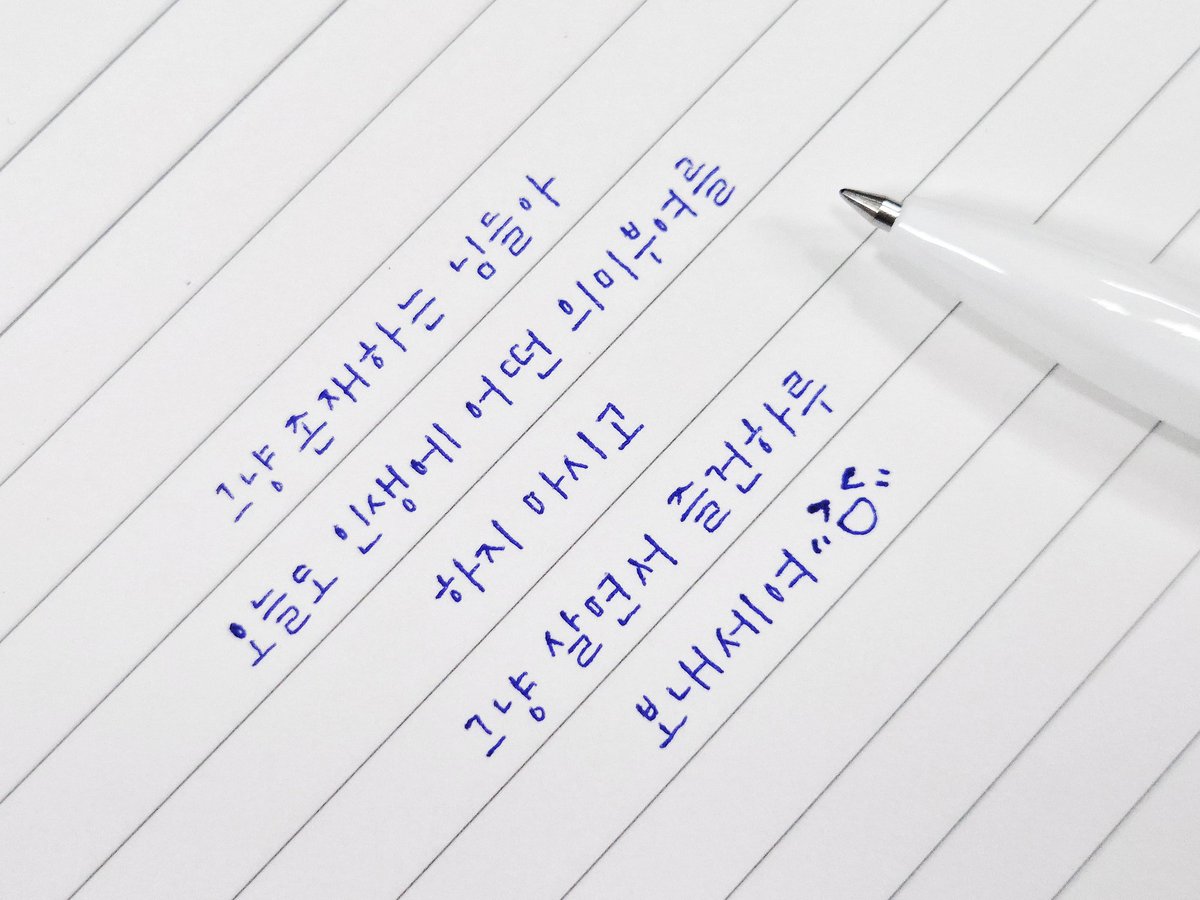 그냥 존재하는 님들아
오늘도 인생에 어떤 의미부여를
하지 마시고
그냥 살면서 즐건하루
보내세여